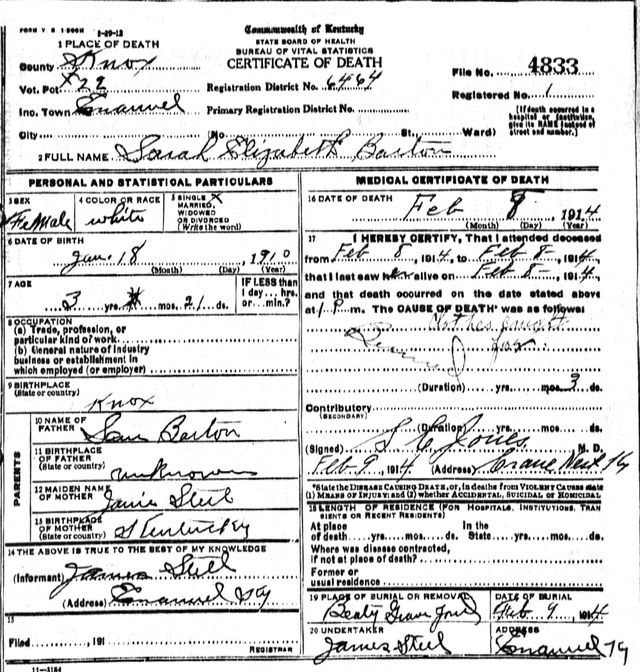 FORM V S 1-200M 2-29-12
Commonwealth of Kentucky
STATE BOARD OF HEALTH
BUREAU OF VITAL STATISTICS
CERTIFICATE OF DEATH
1 PLACE OF DEATH
County Knox
Vot. Pct
Inc. Town Emanuel
City
Registration District No. 6464
Primary Registration District No.
(No. St., Ward)
File No. 4833
Registered No. 1
(If death occurred in a
hospital or institution,
give its NAME instead of
street and number.)
2 FULL NAME Sarah Elizabeth Barton
PERSONAL AND STATISTICAL PARTICULARS
3 SEX
Female
4 COLOR OR RACE
white
5 SINGLE X
MARRIED,
WIDOWED
OR DIVORCED
(Write the word)
6 DATE OF BIRTH
Jan. 18 1910
(Month) (Day) (Year)
7 AGE
3 yrs. mos. 21 ds.
IF LESS than
1 day... hrs.
or... min.?
8 OCCUPATION
(a) Trade, profession, or
particular kind of work
(b) General nature of industry
business or establishment in
which employed (or employer)
9 BIRTHPLACE
(State or country)
Knox
PARENTS
10 NAME OF
FATHER Sam Barton
11 BIRTHPLACE
OF FATHER
(State or country) unknown
12 MAIDEN NAME
OF MOTHER Janie Steel
13 BIRTHPLACE
OF MOTHER
(State or country) Kentuckey
14 THE ABOVE IS TRUE TO THE BEST OF MY KNOWLEDGE
(Informant) James Steel
(Address) Emanuel Ky
15
Filed 191
REGISTRAR
11-3184
MEDICAL CERTIFICATE OF DEATH
16 DATE OF DEATH
Feb 8 1914
(Month) (Day) (Year)
17 I HEREBY CERTIFY, That I attended deceased
from Feb 8 1914, to Feb 8- 1914,
that I last saw her alive on Feb 8- 1914,
and that death occurred on the date stated above
at 1 P m. The CAUSE OF DEATH* was as follows:
Clothes caught
fire
(Duration) yrs. mos. 3 ds.
Contributory
(SECONDARY)
(Duration) yrs. mos. ds.
(Signed) Jones, M. D.
Feb 9, 1914 (Address) Crane Nest Ky
*State the DISEASE CAUSING DEATH, or, in deaths from VIOLENT CAUSES state
(1) MEANS OF INJURY; and (2) whether ACCIDENTAL, SUICIDAL OR HOMICIDAL
18 LENGTH OF RESIDENCE (FOR HOSPITALS, INSTITUTIONS, TRAN
SIENTS OR RECENT RESIDENTS)
At place In the
of death yrs. mos. ds. State yrs. mos. ds.
Where was disease contracted,
if not at place of death?
Former or
usual residence
19 PLACE OF BURIAL OR REMOVAL
DATE OF BURIAL
Feb. 9 1914
20 UNDERTAKER
James Steel
ADDRESS
Emanuel Ky